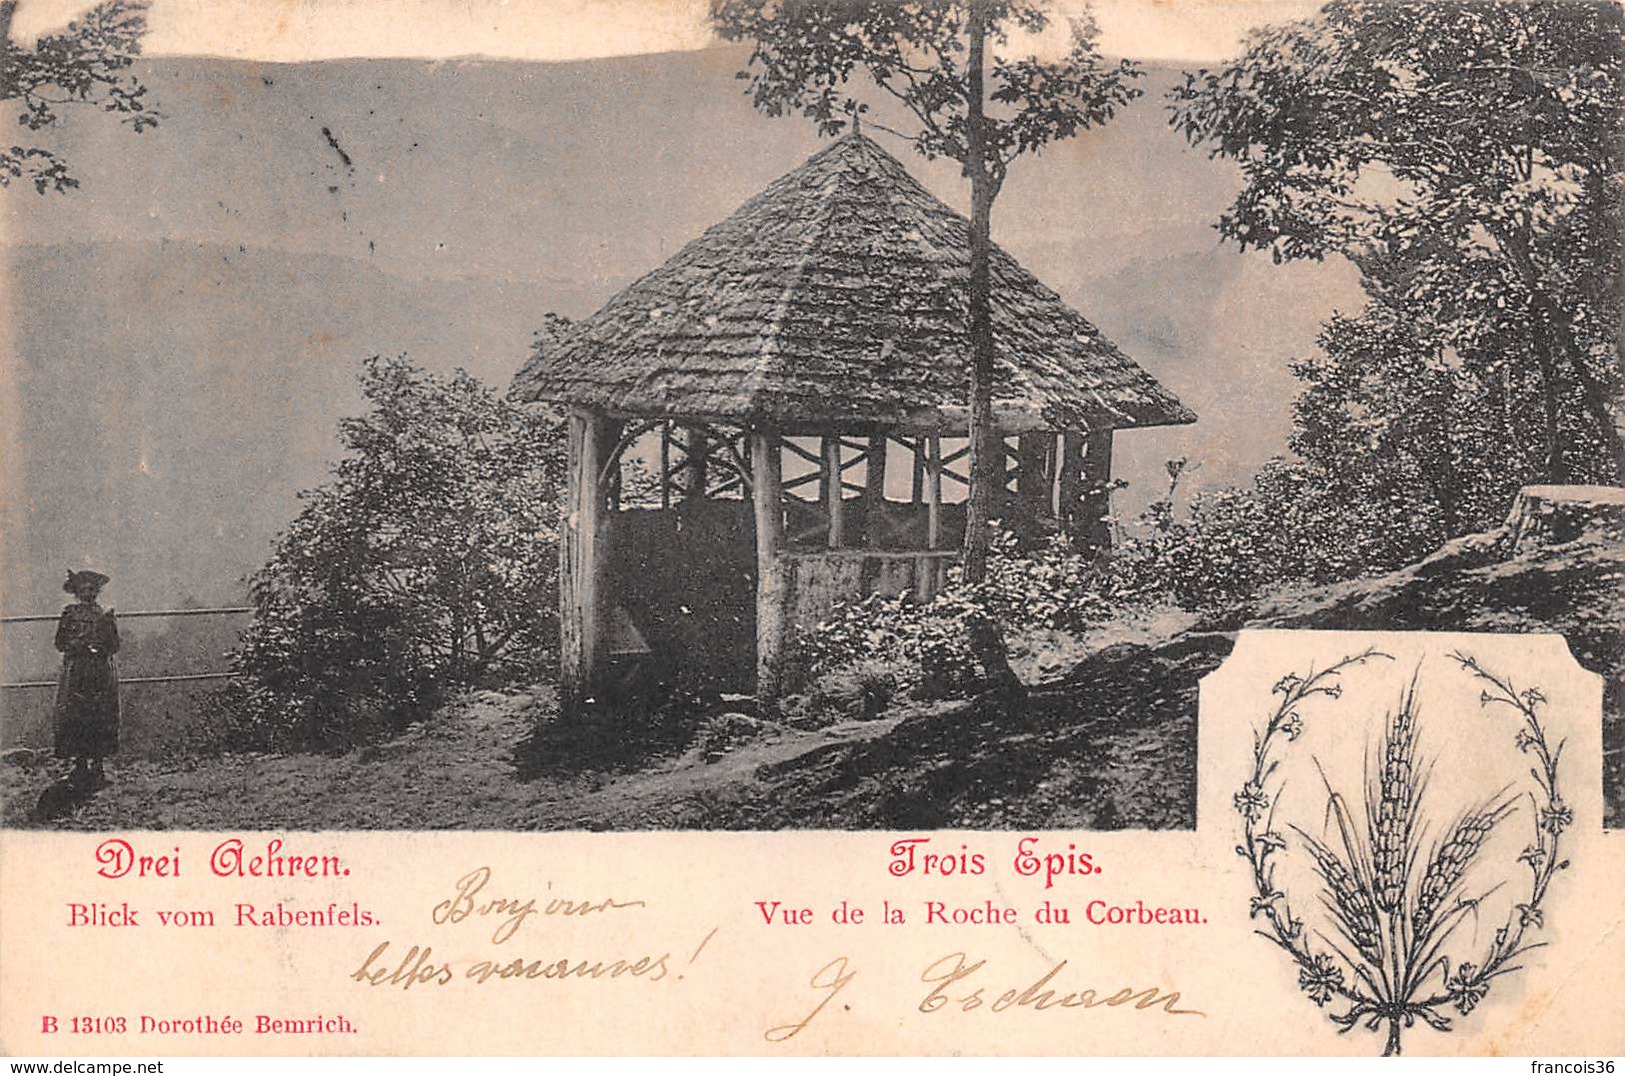 Drei Aehren.
Blick vom Rabenfels.
Trois Epis.
Vue de la Roche du Corbeau.
Bonjour
belles vacances!
J.
B 13103 Dorothée Bemrich.
www.delcampe.net
francois36